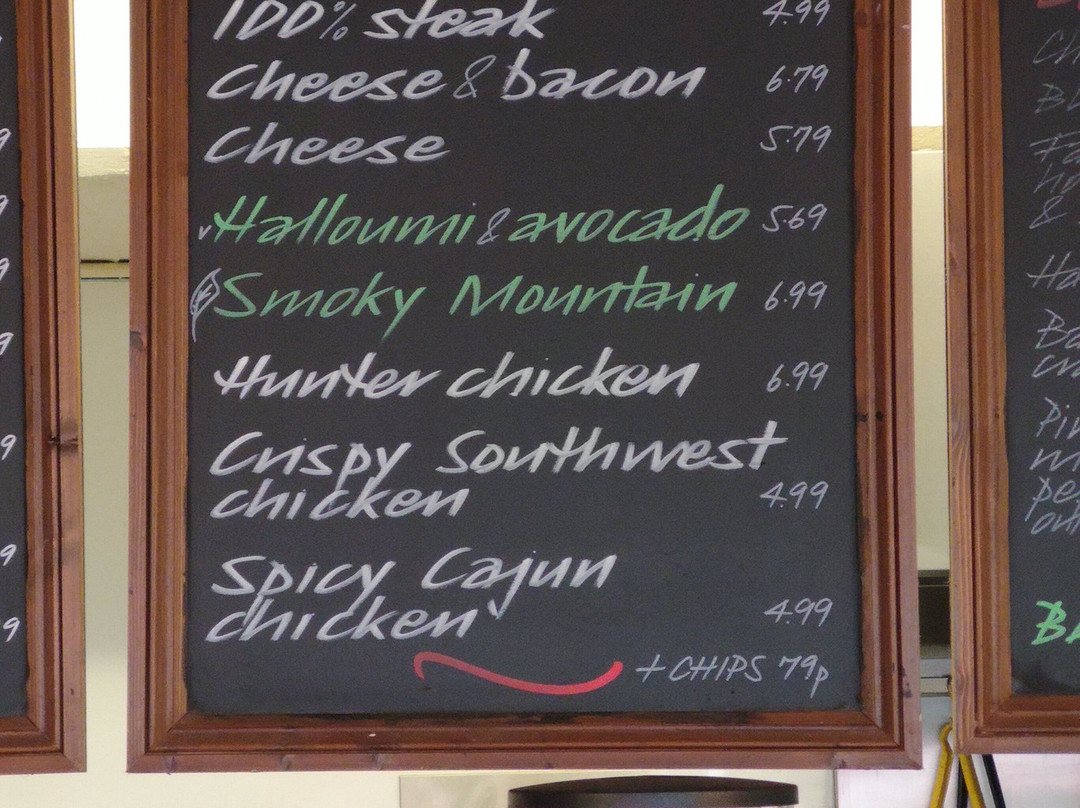 100% steak 4.99
Cheese & bacon 6.79
Cheese 5.79
v Halloumi & avocado 5.69
Smoky Mountain 6.99
Hunter chicken 6.99
Crispy Southwest
chicken 4.99
Spicy Cajun
chicken 4.99
+ CHIPS 79p